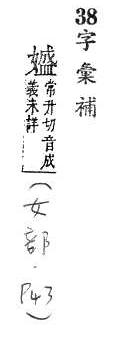 38字彙補
常升切音成
義未詳
(女部·P43)